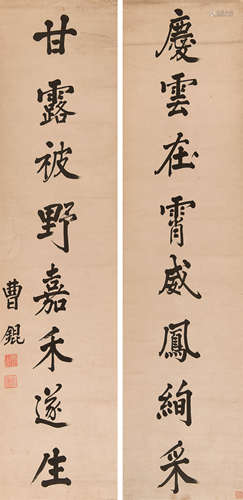 慶雲在霄威鳳絢采
甘露被野嘉禾遂生
曹錕